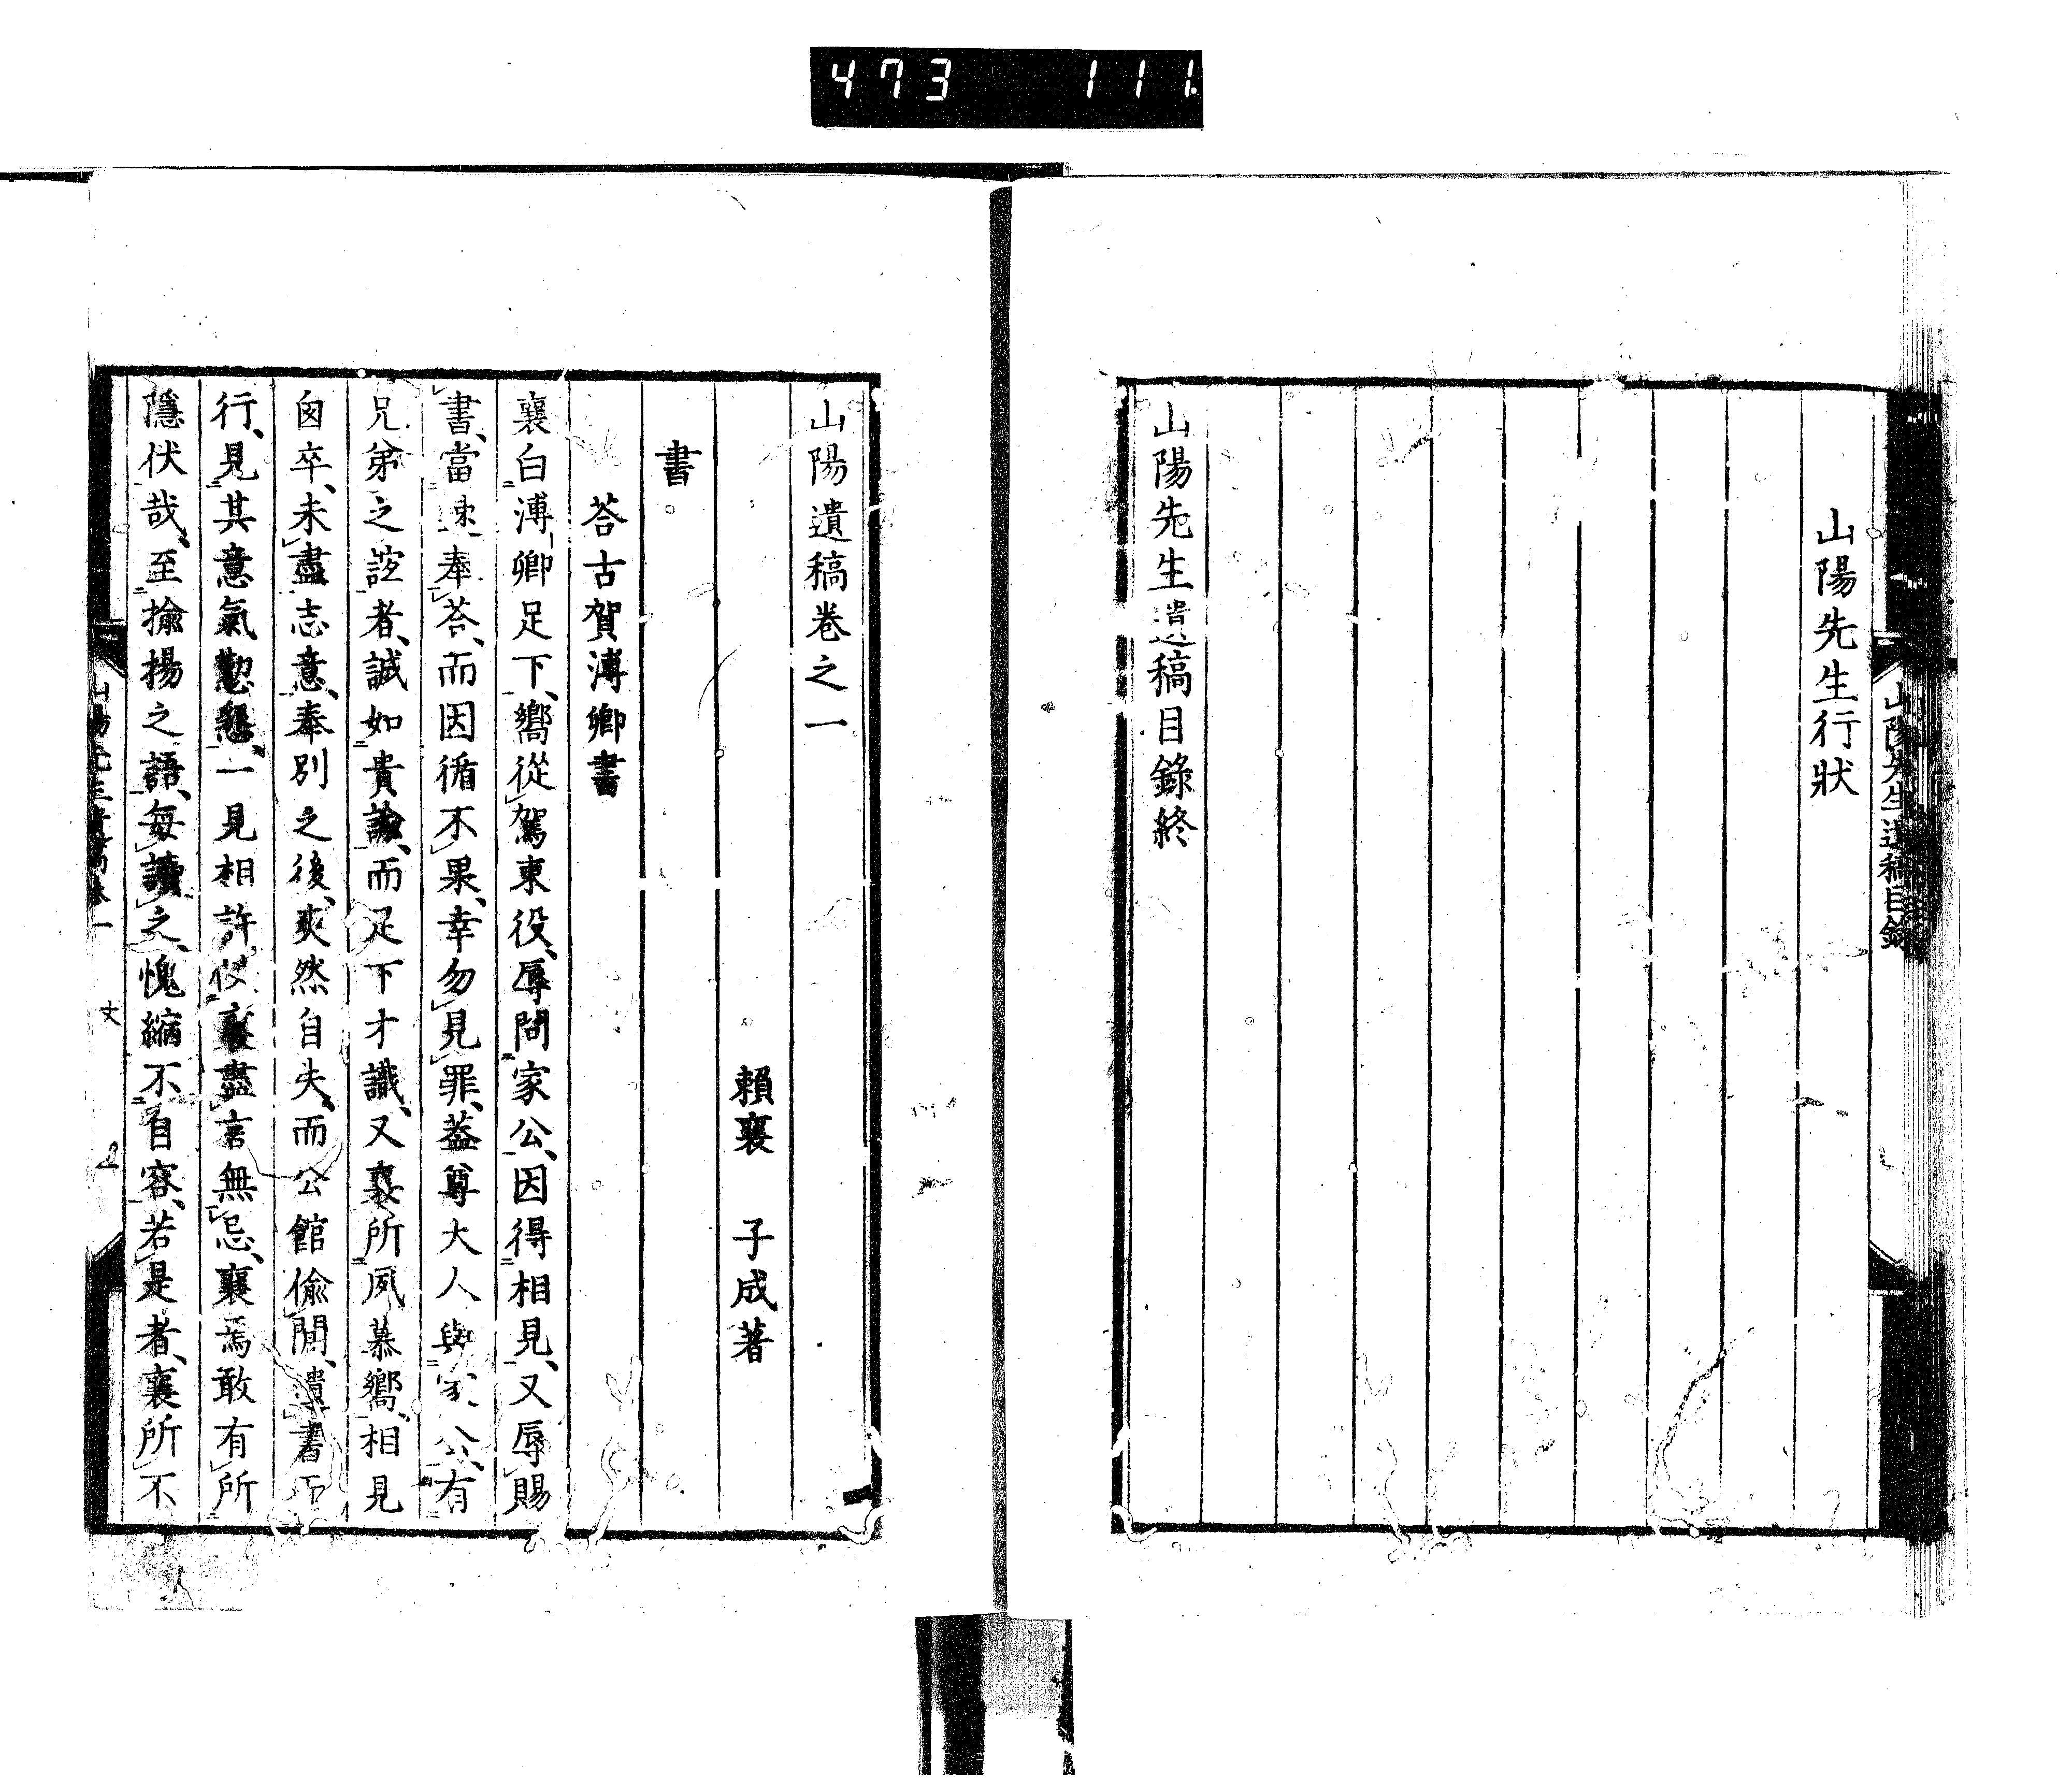 473 111
山陽先生遺稿目錄
山陽先生行狀
山陽先生遺稿目錄終
山陽遺稿卷之一
賴襄 子成著
書
荅古賀溥卿書
襄白溥卿足下、嚮從駕東役、辱問家公、因得相見、又辱賜
書、當 奉荅、而因循不果、幸勿見罪、蓋尊大人與家公、有
兄弟之誼者、誠如貴諭、而足下才識、又襄所夙慕嚮、相見
匆卒、未盡志意、奉別之後、爽然自失、而公館偸閒、遺書
行、見其意氣懃懇、一見相許、使襄盡言無忌、襄焉敢有所
隱伏哉、至揄揚之語、每讀之、愧縮不自容、若是者、襄所不